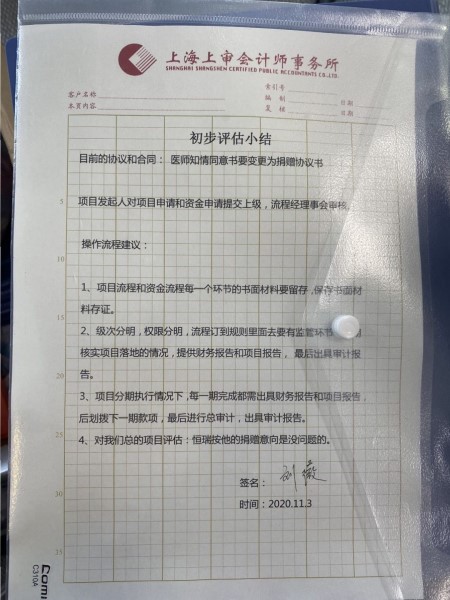 上海上审会计师事务所
SHANGHAI SHANGSHEN CERTIFIED PUBLIC ACCOUNTANTS CO.LTD.
索引号
客户名称
编制 日期
本页内容
复核 日期
初步评估小结
目前的协议和合同： 医师知情同意书要变更为捐赠协议书
5
项目发起人对项目申请和资金申请提交上级，流程经理事会审核。
操作流程建议：
10
1、项目流程和资金流程每一个环节的书面材料要留存，保存书面材
料存证。
15
2、级次分明，权限分明，流程订到规则里面去要有监管环节
核实项目落地的情况，提供财务报告和项目报告， 最后出具审计报
告。
20
3、项目分期执行情况下，每一期完成都需出具财务报告和项目报告，
后划拨下一期款项，最后进行总审计，出具审计报告。
25
4、对我们总的项目评估：恒瑞按他的捐赠意向是没问题的。
签名：
30
时间：2020.11.3
C310A